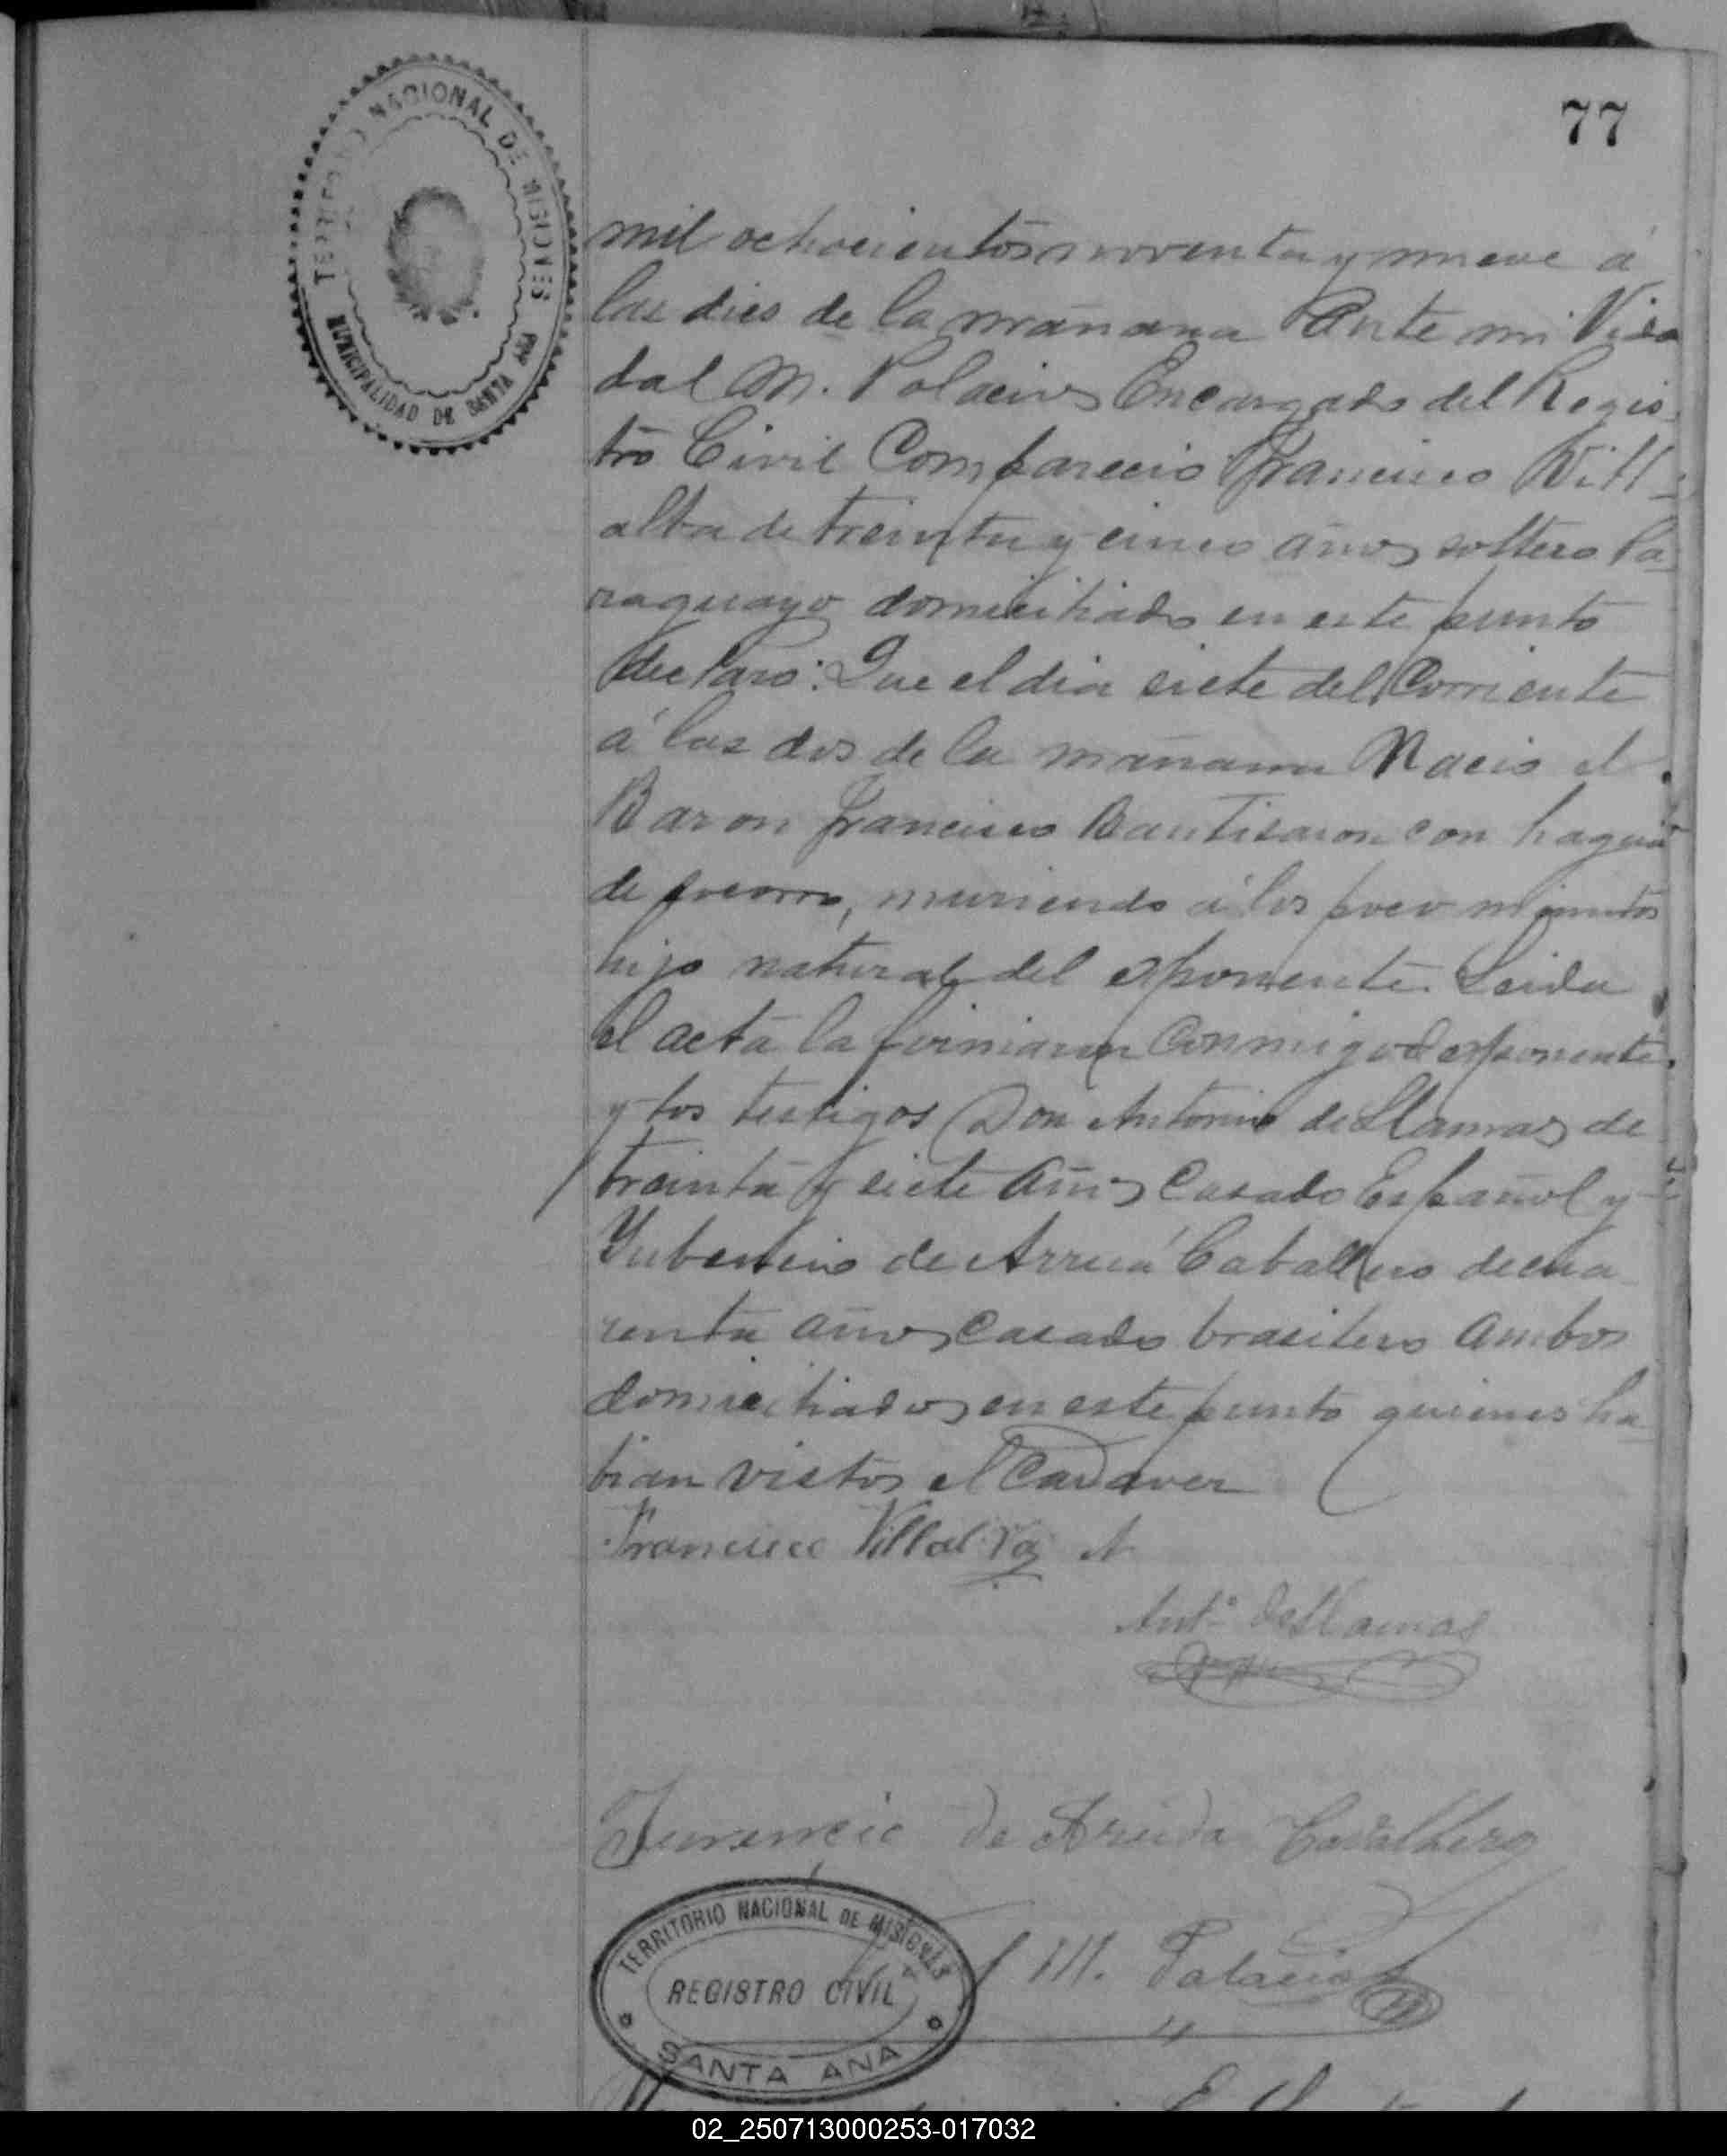 TERRITORIO NACIONAL DE MISIONES
MUNICIPALIDAD DE SANTA ANA
77
mil ochocientos noventa y nueve á
las dies de la mañana Ante mi Vida
dal M. Palacios Encargado del Regis
tro Civil Comparecio Francisco Vill-
alba de treinta y cinco años soltero Pa
raguayo domiciliado en este punto
declaro: Que el dia siete del Corriente
á las dos de la mañana Nacio el
Baron Francisco Bautisaron con hagua
de socorro, muriendo á los poco minutos
hijo natural del esponente. Leida
el acta la firmaron Conmigo el esponente
y los testigos Don Antonio de Llamas de
treinta y siete años Casado Español y
Yubencio de Arruá Caballero de cua
renta años Casado brasilero ambos
domiciliados en este punto quienes ha
bian vistos el Cadaver
Francisco Villalva
Ant.º de Llamas
Juvencio de Aruda Cavalhero
l M. Palacios
TERRITORIO NACIONAL DE MISIONES
REGISTRO CIVIL
SANTA ANA
02_250713000253-017032